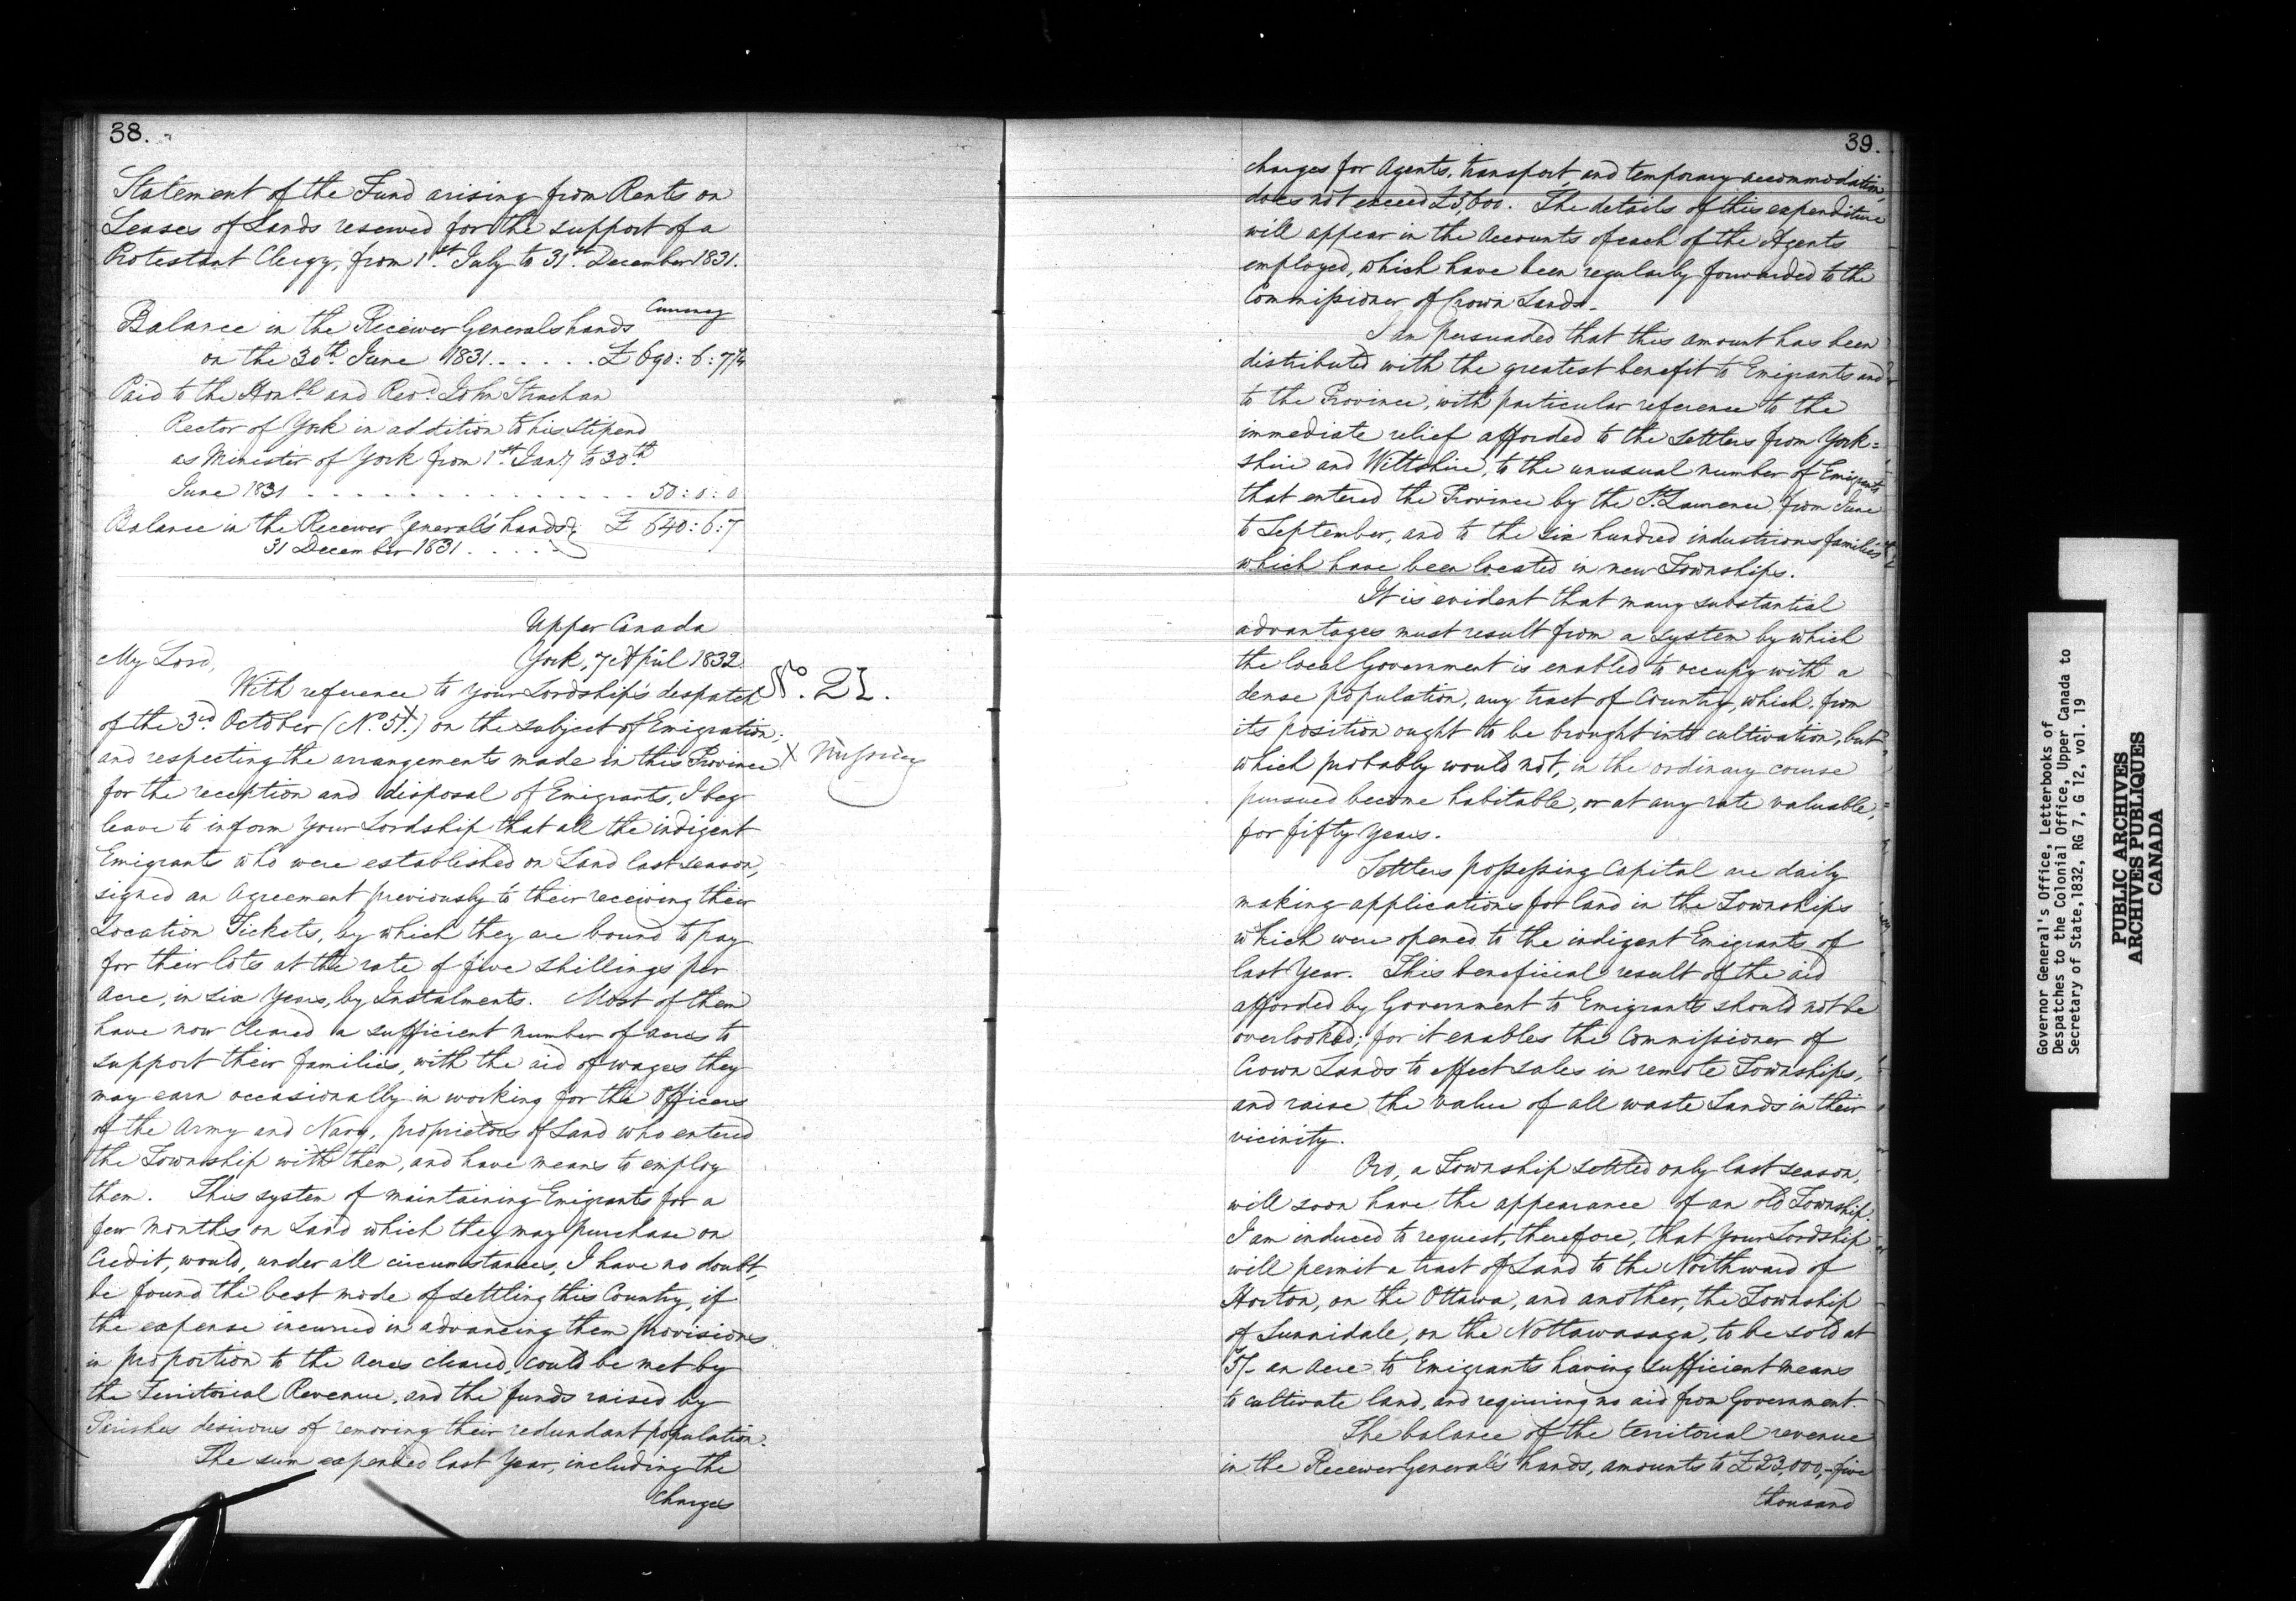 38.
Statement of the Fund arising from Rents on
Leases of Lands reserved for the support of a
Protestant Clergy, from 1st July to 31st December 1831.
Currency
Balance in the Receiver Generals hands
on the 30th June 1831 . . . . . £ 690 : 6 : 7
Paid to the Honble and Revd John Strachan
Rector of York in addition to his stipend
as Minister of York from 1st Jany to 30th
June 1831 . . . . . . . . . . . . . . . 50 : 0 : 0
Balance in the Receiver General's hands } £ 640 : 6 : 7
31 December 1831 . . . . .
Upper Canada
York, 7 April 1832.
My Lord,
With reference to your Lordship's despatch
No. 21.
of the 3rd October (No. 51.) on the subject of Emigration;
and respecting the arrangements made in this Province
X Missing
for the reception and disposal of Emigrants, I beg
leave to inform your Lordship that all the indigent
Emigrants who were established on Land last season,
signed an Agreement previously to their receiving their
Location Tickets, by which they are bound to pay
for their lots at the rate of five shillings per
Acre, in six Years, by Instalments. Most of them
have now cleared a sufficient number of acres to
support their families, with the aid of wages they
may earn occasionally in working for the Officers
of the Army and Navy, proprietors of Land who entered
the Township with them, and have means to employ
them. This system of maintaining Emigrants for a
few Months on Land which they may purchase on
Credit, would, under all circumstances, I have no doubt,
be found the best mode of settling this Country, if
the expense incurred in advancing them provisions
in proportion to the Acres cleared, could be met by
the Territorial Revenue, and the funds raised by
Parishes desirous of removing their redundant population.
The sum expended last Year, including the
Charges
39.
charges for Agents, transport, and temporary accommodation,
does not exceed £5,600. The details of this expenditure
will appear in the Accounts of each of the Agents
employed, which have been regularly forwarded to the
Commissioner of Crown Lands.
I am persuaded that this amount has been
distributed with the greatest benefit to Emigrants and
to the Province, with particular reference to the
immediate relief afforded to the settlers from York=
shire and Wiltshire, to the unusual number of Emigrants
that entered the Province by the St. Lawrence, from June
to September, and to the six hundred industrious families
which have been located in new Townships.
It is evident that many substantial
advantages must result from a system by which
the local Government is enabled to occupy with a
dense population, any tract of Country, which, from
its position ought to be brought into cultivation, but
which probably would not, in the ordinary course
pursued become habitable, or at any rate valuable,
for fifty years.
Settlers possessing Capital are daily
making applications for land in the Townships
which were opened to the indigent Emigrants of
last Year. This beneficial result of the aid
afforded by Government to Emigrants should not be
overlooked; for it enables the Commissioner of
Crown Lands to effect sales in remote Townships,
and raise the value of all waste Lands in their
vicinity.
Oro, a Township settled only last season,
will soon have the appearance of an old Township.
I am induced to request, therefore, that Your Lordship
will permit a tract of Land to the Northward of
Horton, on the Ottawa, and another, the Township
of Sunnidale, on the Nottawasaga, to be sold at
5/- an Acre to Emigrants having sufficient means
to cultivate land, and requiring no aid from Government.
The balance of the territorial revenue
in the Receiver General's hands, amounts to £23,000,- five
thousand
Governor General's Office, Letterbooks of
Despatches to the Colonial Office, Upper Canada to
Secretary of State,1832, RG 7, G 12, vol. 19
PUBLIC ARCHIVES
ARCHIVES PUBLIQUES
CANADA